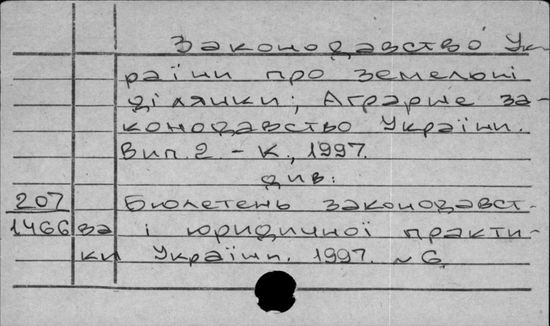 Законодавство Ук-
раїни про земельні
ділянки; Аграрне за-
конодавство України.
Вип. 2 – К., 1997.
див.
207 Бюлетень законодавст-
1466 ва і юридичної практи-
ки України. 1997. №6.